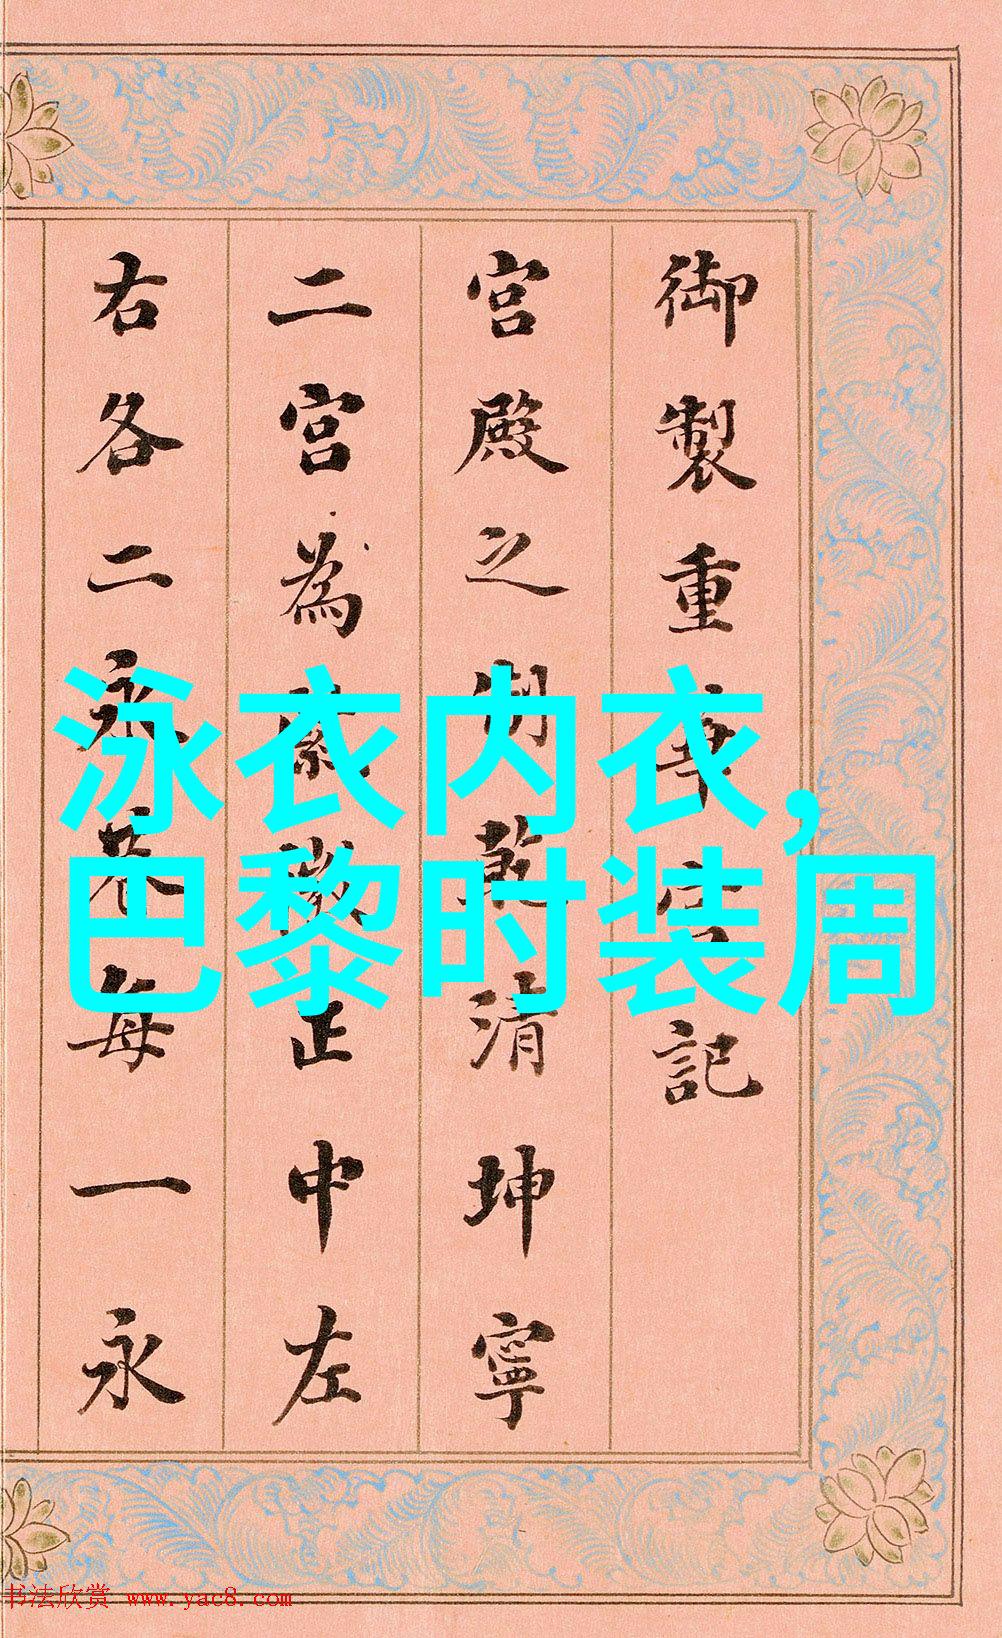 御製重華宮記
宮殿之制乾清坤寧
二宮為紫微正中左
右各二永巷每一永
泳衣内衣,
巴黎时装周
书法欣赏 www.yac8.com